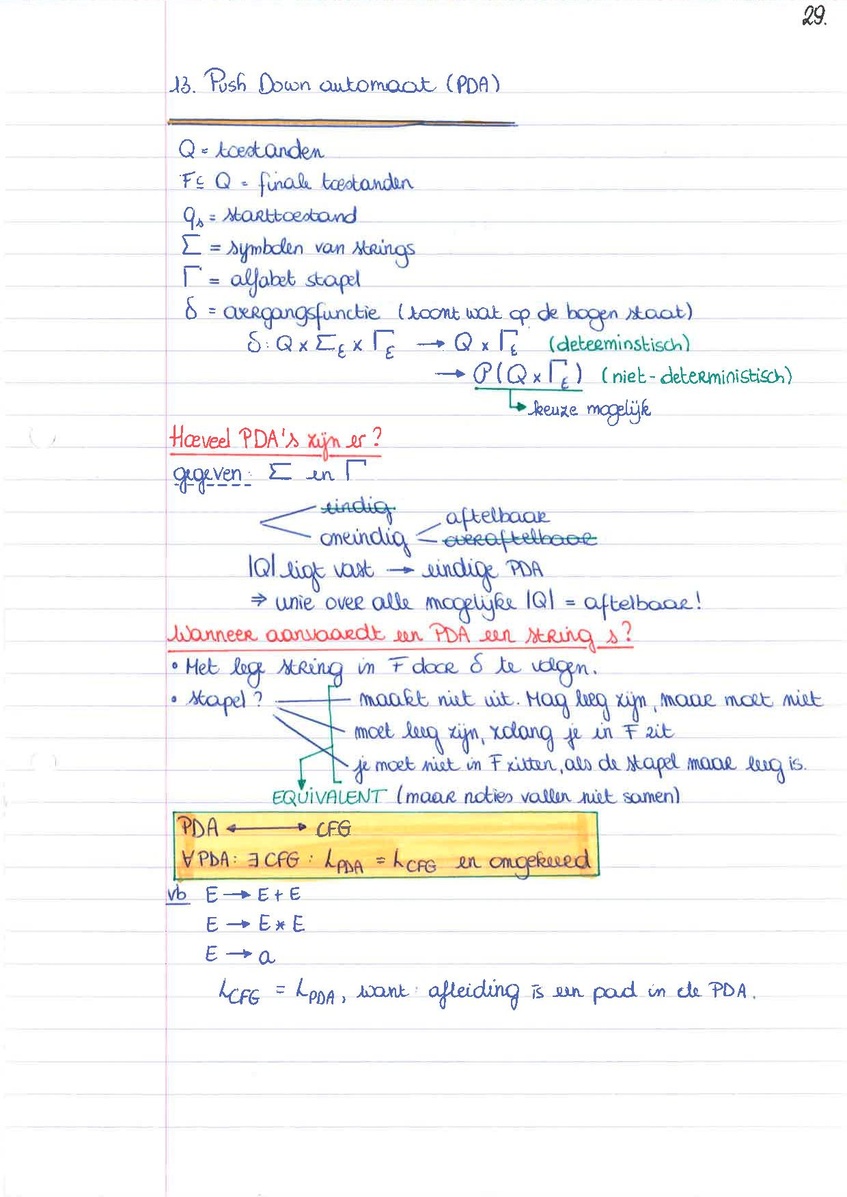 29.
13. Push Down automaat (PDA)
Q = toestanden
F ⊆ Q = finale toestanden
qs = starttoestand
Σ = symbolen van strings
Γ = alfabet stapel
δ = overgangsfunctie (toont wat op de bogen staat)
δ: Q × Σε × Γε → Q × Γε (determinstisch)
→ P(Q × Γε) (niet-deterministisch)
↳ keuze mogelijk
Hoeveel PDA's zijn er?
gegeven: Σ en Γ
eindig
aftelbaar
oneindig
overaftelbaar
|Q| ligt vast → eindige PDA
⇒ unie over alle mogelijke |Q| = aftelbaar!
Wanneer aanvaardt een PDA een string s?
• Met lege string in F door δ te volgen.
• stapel? maakt niet uit. Mag leeg zijn, maar moet niet
moet leeg zijn, zolang je in F zit
je moet niet in F zitten, als de stapel maar leeg is.
EQUIVALENT (maar noties vallen niet samen)
PDA ↔ CFG
∀ PDA: ∃ CFG: LPDA = LCFG en omgekeerd
vb E → E + E
E → E * E
E → a
LCFG = LPDA, want: afleiding is een pad in de PDA.